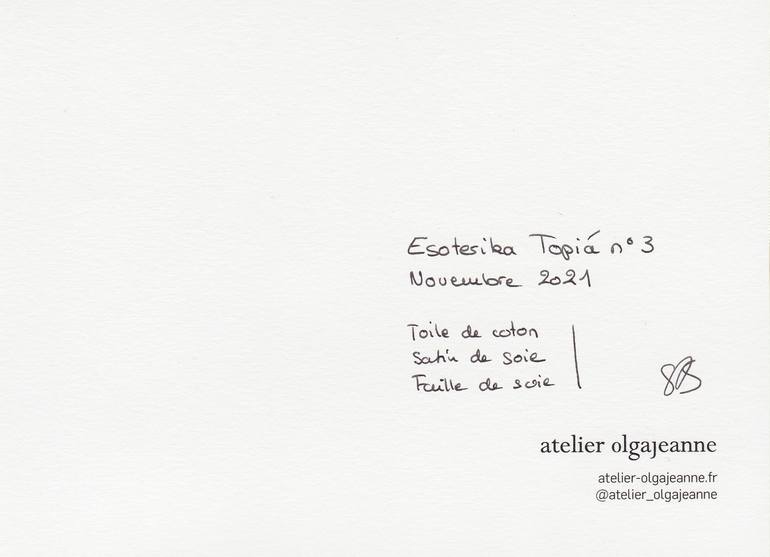 Esoterika Topiá n° 3
Novembre 2021
Toile de coton
Satin de soie
Faille de soie
atelier olgajeanne
atelier-olgajeanne.fr
@atelier_olgajeanne